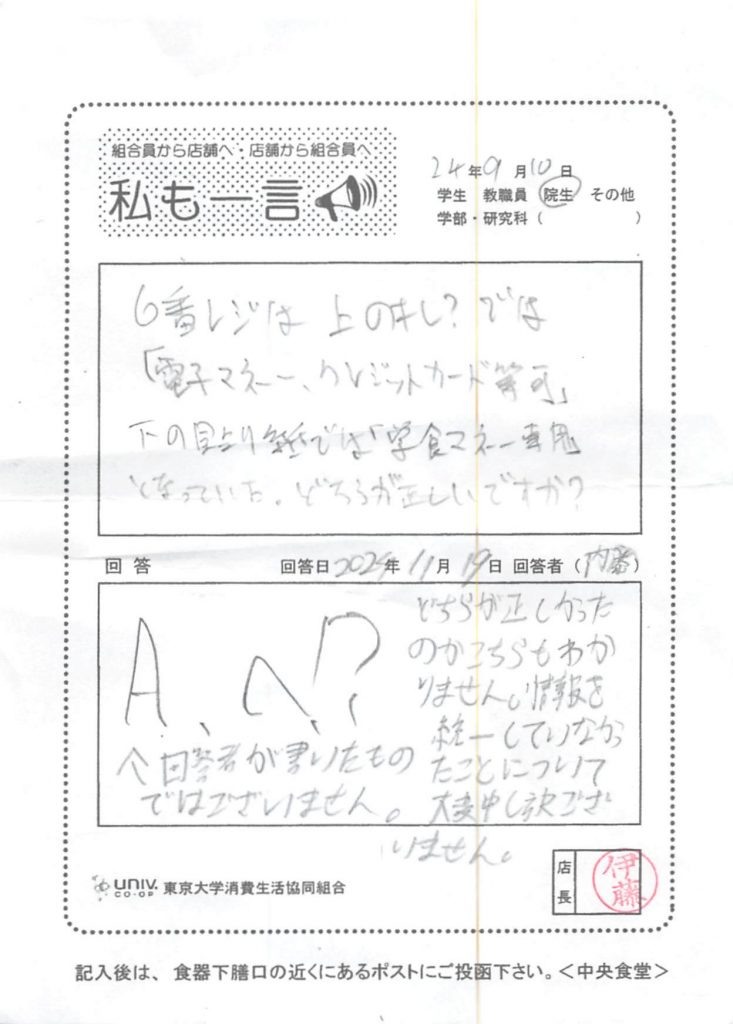 組合員から店舗へ・店舗から組合員へ
私も一言
24年9月10日
学生 教職員 院生 その他
学部・研究科( )
6番レジは 上の ? では
「電子マネー、クレジットカード等可」
下の貼り紙では「学食マネー専用
となっていた。どちらが正しいですか?
回答 回答日2024年11月19日 回答者(内番)
A、へ?
へ回答者が書いたもの
ではございません。
どちらが正しかった
のかこちらもわか
りません。情報を
統一していなかっ
たことについて
大変申し訳ござ
いません。
UNIV. CO-OP 東京大学消費生活協同組合
店長 伊藤
記入後は、食器下膳口の近くにあるポストにご投函下さい。<中央食堂>